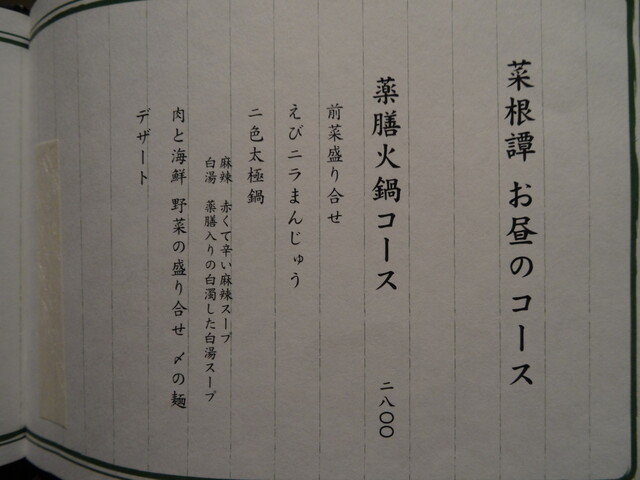 菜根譚 お昼のコース
薬膳火鍋コース 二八〇〇
前菜盛り合せ
えびニラまんじゅう
二色太極鍋
麻辣 赤くて辛い麻辣スープ
白湯 薬膳入りの白濁した白湯スープ
肉と海鮮 野菜の盛り合せ 〆の麺
デザート